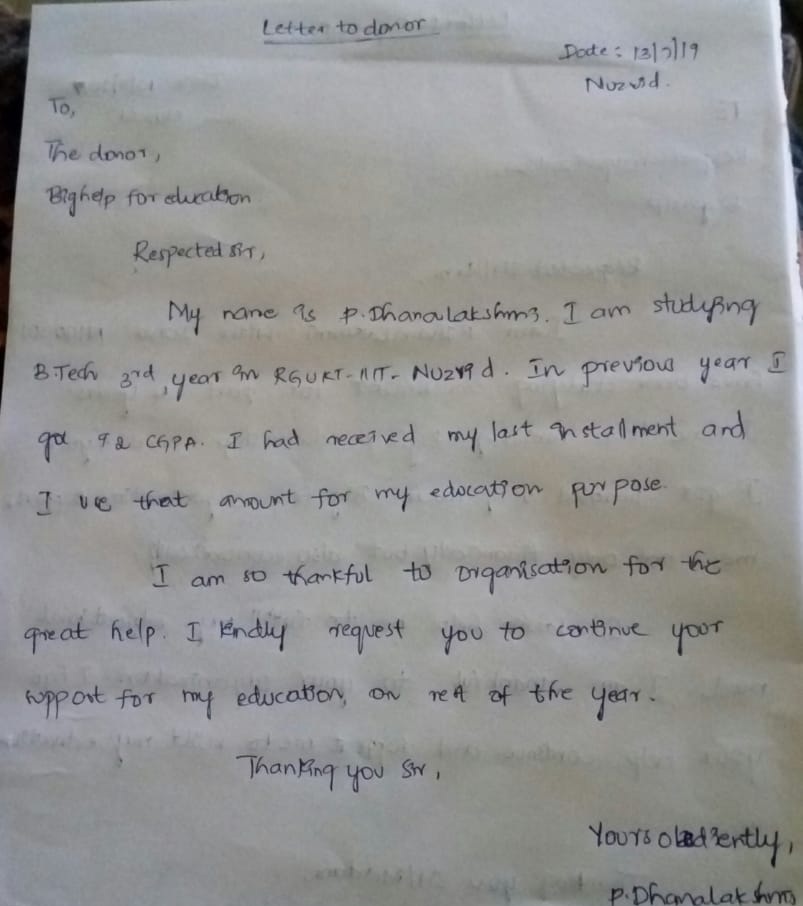 Letter to donor
Date: 13/7/19
Nuzvid.
To,
The donor,
Bighelp for education
Respected sir,
My name is P.Dhanalakshmi. I am studying
B.Tech 3rd year in RGUKT-IIIT- Nuzvid. In previous year I
got 9.2 CGPA. I had received my last installment and
I use that amount for my education purpose.
I am so thankful to organisation for the
great help. I kindly request you to continue your
support for my education, on rest of the year.
Thanking you sir,
Yours obediently,
P.Dhanalakshmi